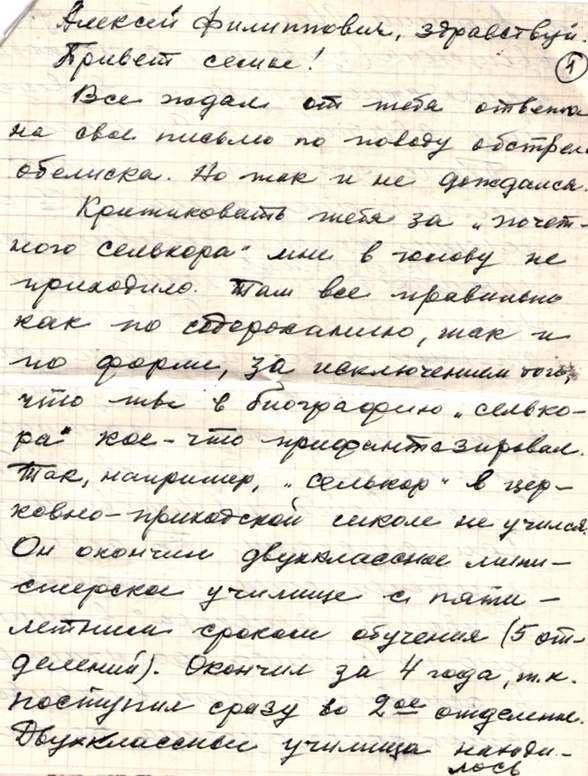 Алексей Филиппович, здравствуй.
Привет семье!
1
Все ждал от тебя ответа
на свое письмо по поводу обстрела
обелиска. Но так и не дождался.
Критиковать тебя за „почет-
ного селькора" мне в голову не
приходило. Там все правильно
как по содержанию, так и
по форме, за исключением того,
что ты в биографию „селько-
ра" кое-что прифантазировал.
Так, например, „селькор" в цер-
ковно-приходской школе не учился.
Он окончил двухклассное мини-
стерское училище с пяти-
летним сроком обучения (5 от-
делений). Окончил за 4 года, т.к.
поступил сразу во 2ое отделение.
Двухклассное училище находи-
лось